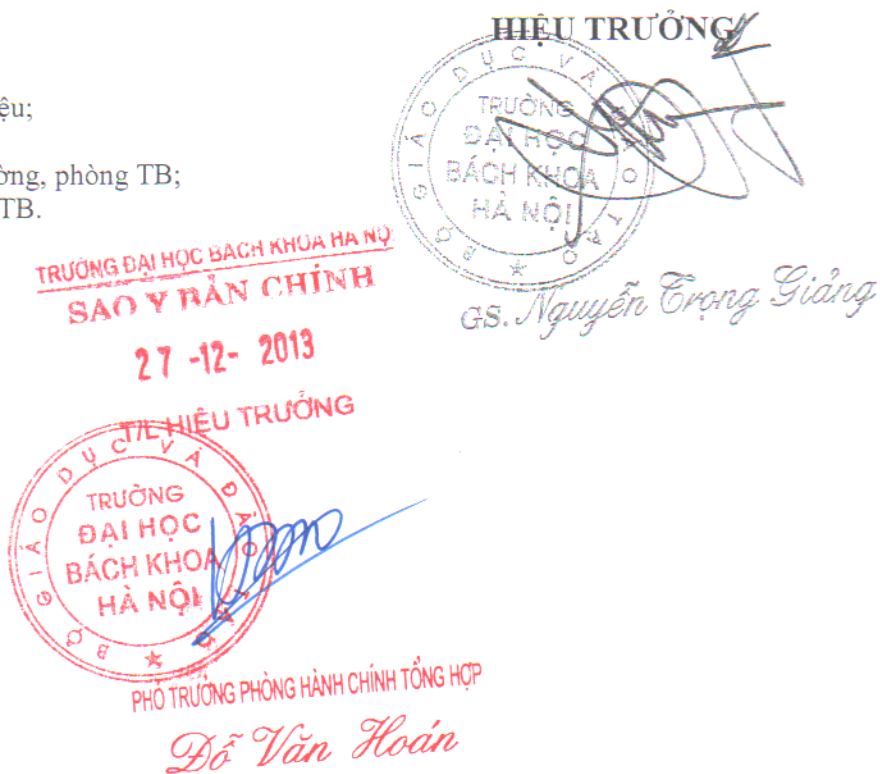 HIỆU TRƯỞNG
BỘ GIÁO DỤC VÀ ĐÀO TẠO
TRƯỜNG
ĐẠI HỌC
BÁCH KHOA
HÀ NỘI
ệu;
ờng, phòng TB;
TB.
GS. Nguyễn Trọng Giảng
TRƯỜNG ĐẠI HỌC BÁCH KHOA HÀ NỘ
SAO Y BẢN CHÍNH
27 -12- 2013
T/L HIỆU TRƯỞNG
BỘ GIÁO DỤC VÀ ĐÀO TẠO
TRƯỜNG
ĐẠI HỌC
BÁCH KHOA
HÀ NỘI
PHÓ TRƯỞNG PHÒNG HÀNH CHÍNH TỔNG HỢP
Đỗ Văn Hoán